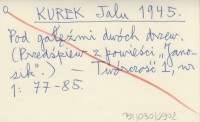 KUREK Jalu 1945.
Pod gałęźmi dwóch drzew.
(Przedśpiew z powieści "Jano-
sik".) — Twórczość 1, nr
1: 77-85.